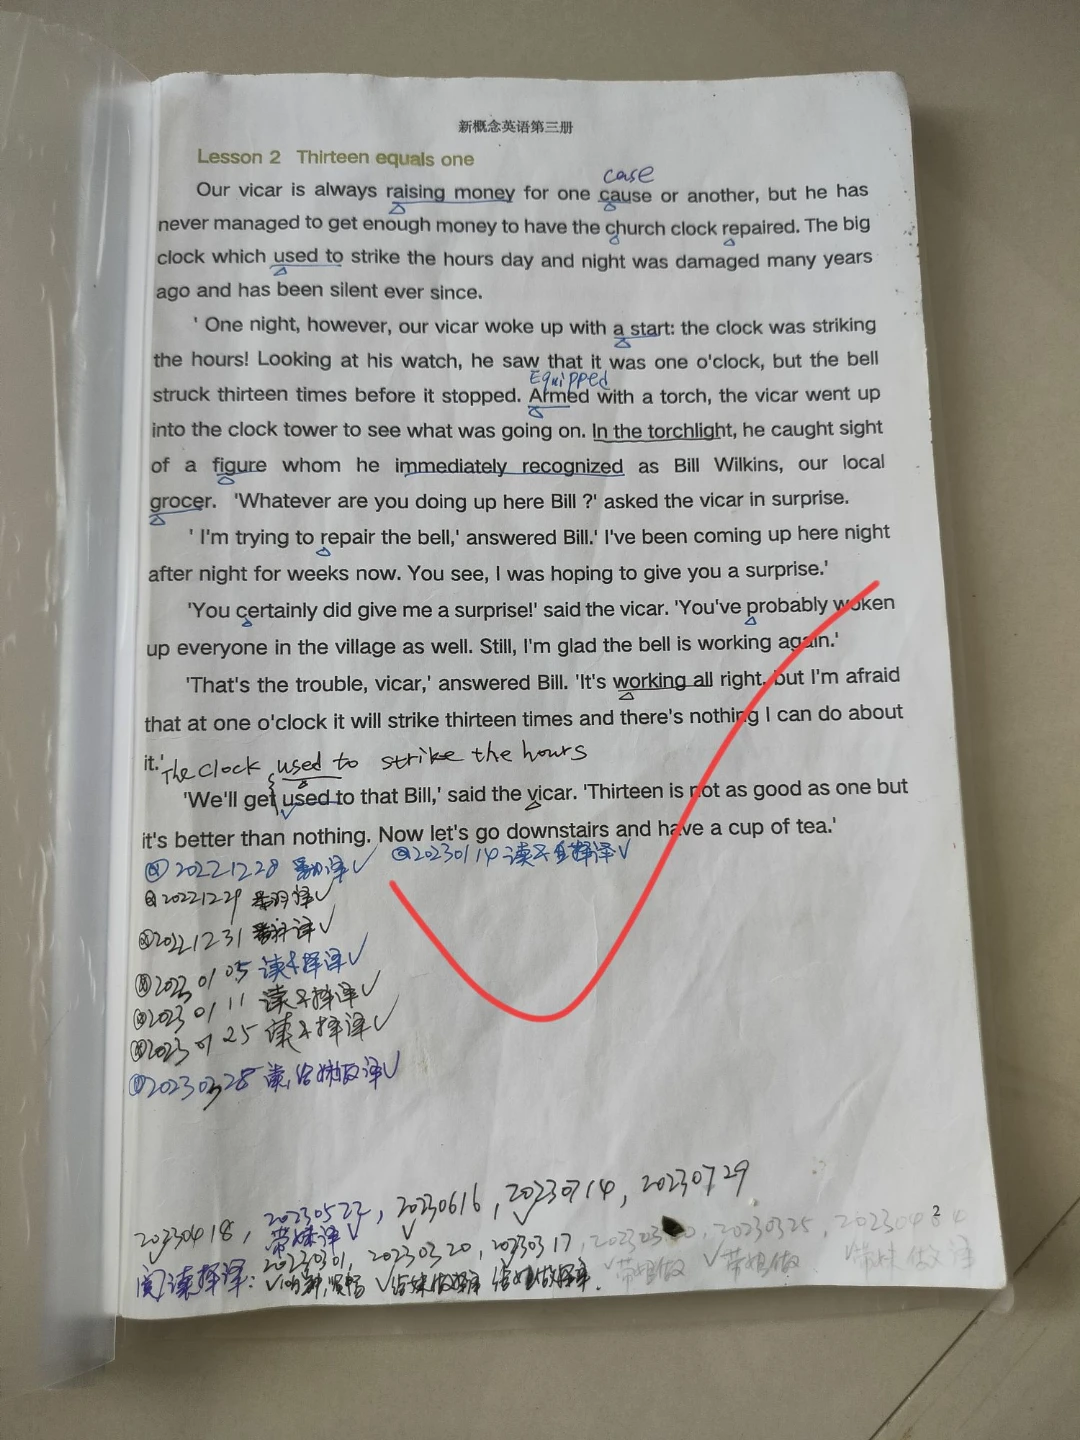 新概念英语第三册
Lesson 2 Thirteen equals one
case
Our vicar is always raising money for one cause or another, but he has
never managed to get enough money to have the church clock repaired. The big
clock which used to strike the hours day and night was damaged many years
ago and has been silent ever since.
' One night, however, our vicar woke up with a start: the clock was striking
the hours! Looking at his watch, he saw that it was one o'clock, but the bell
Equipped
struck thirteen times before it stopped. Armed with a torch, the vicar went up
into the clock tower to see what was going on. In the torchlight, he caught sight
of a figure whom he immediately recognized as Bill Wilkins, our local
grocer. 'Whatever are you doing up here Bill ?' asked the vicar in surprise.
' I'm trying to repair the bell,' answered Bill.' I've been coming up here night
after night for weeks now. You see, I was hoping to give you a surprise.'
'You certainly did give me a surprise!' said the vicar. 'You've probably woken
up everyone in the village as well. Still, I'm glad the bell is working again.'
'That's the trouble, vicar,' answered Bill. 'It's working all right, but I'm afraid
that at one o'clock it will strike thirteen times and there's nothing I can do about
it.' The clock used to strike the hours
'We'll get used to that Bill,' said the vicar. 'Thirteen is not as good as one but
it's better than nothing. Now let's go downstairs and have a cup of tea.'
20221228 译✓ 20230114 读 译✓
20221229 译✓
20221231 译✓
20230105 读 择译✓
20230111 读 择译✓
20230125 读 择译✓
20230328 读, 给妹 译✓
20230418, 20230522, 20230616, 20230714, 20230729
带妹译
20230301, 20230320, 20230317, 20230325,
阅读择译: 给妹做 带姐做 带姐做 带妹做 译
2